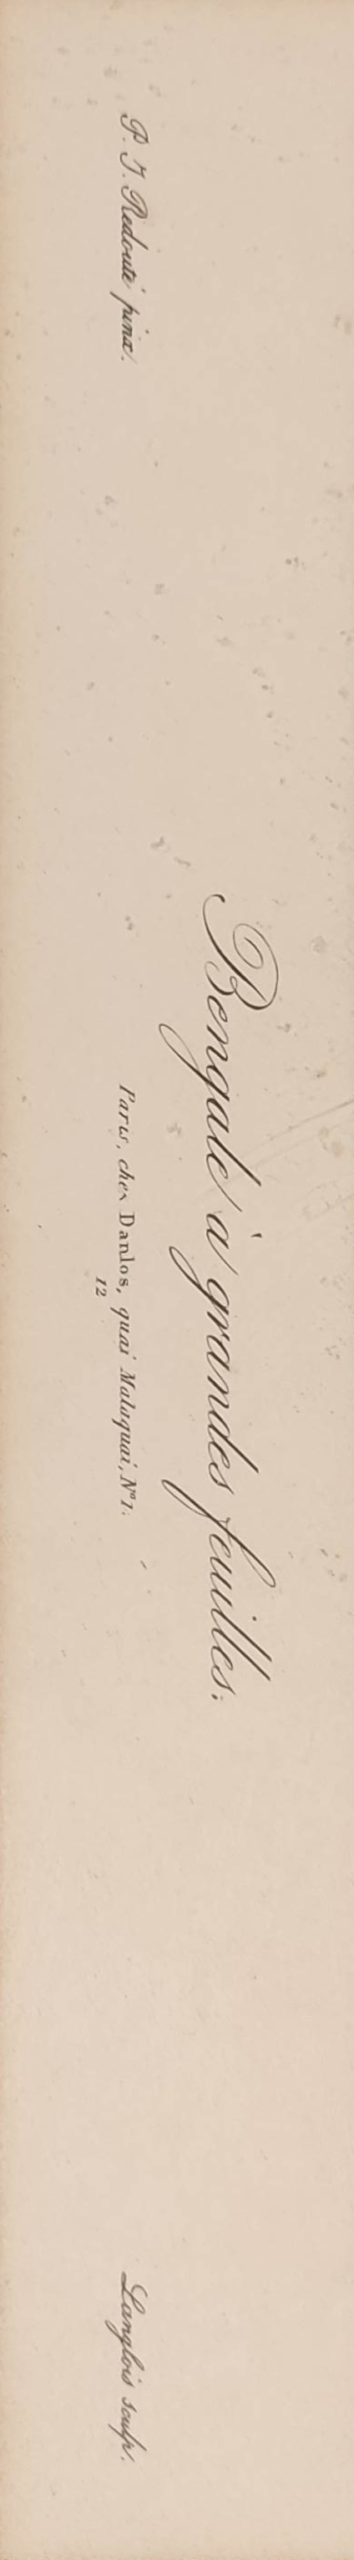 Bengale à grandes feuilles.
P. J. Redouté pinx.
Paris, chez Danlos, quai Malaquai, N° 1.
Langlois sculp.
12